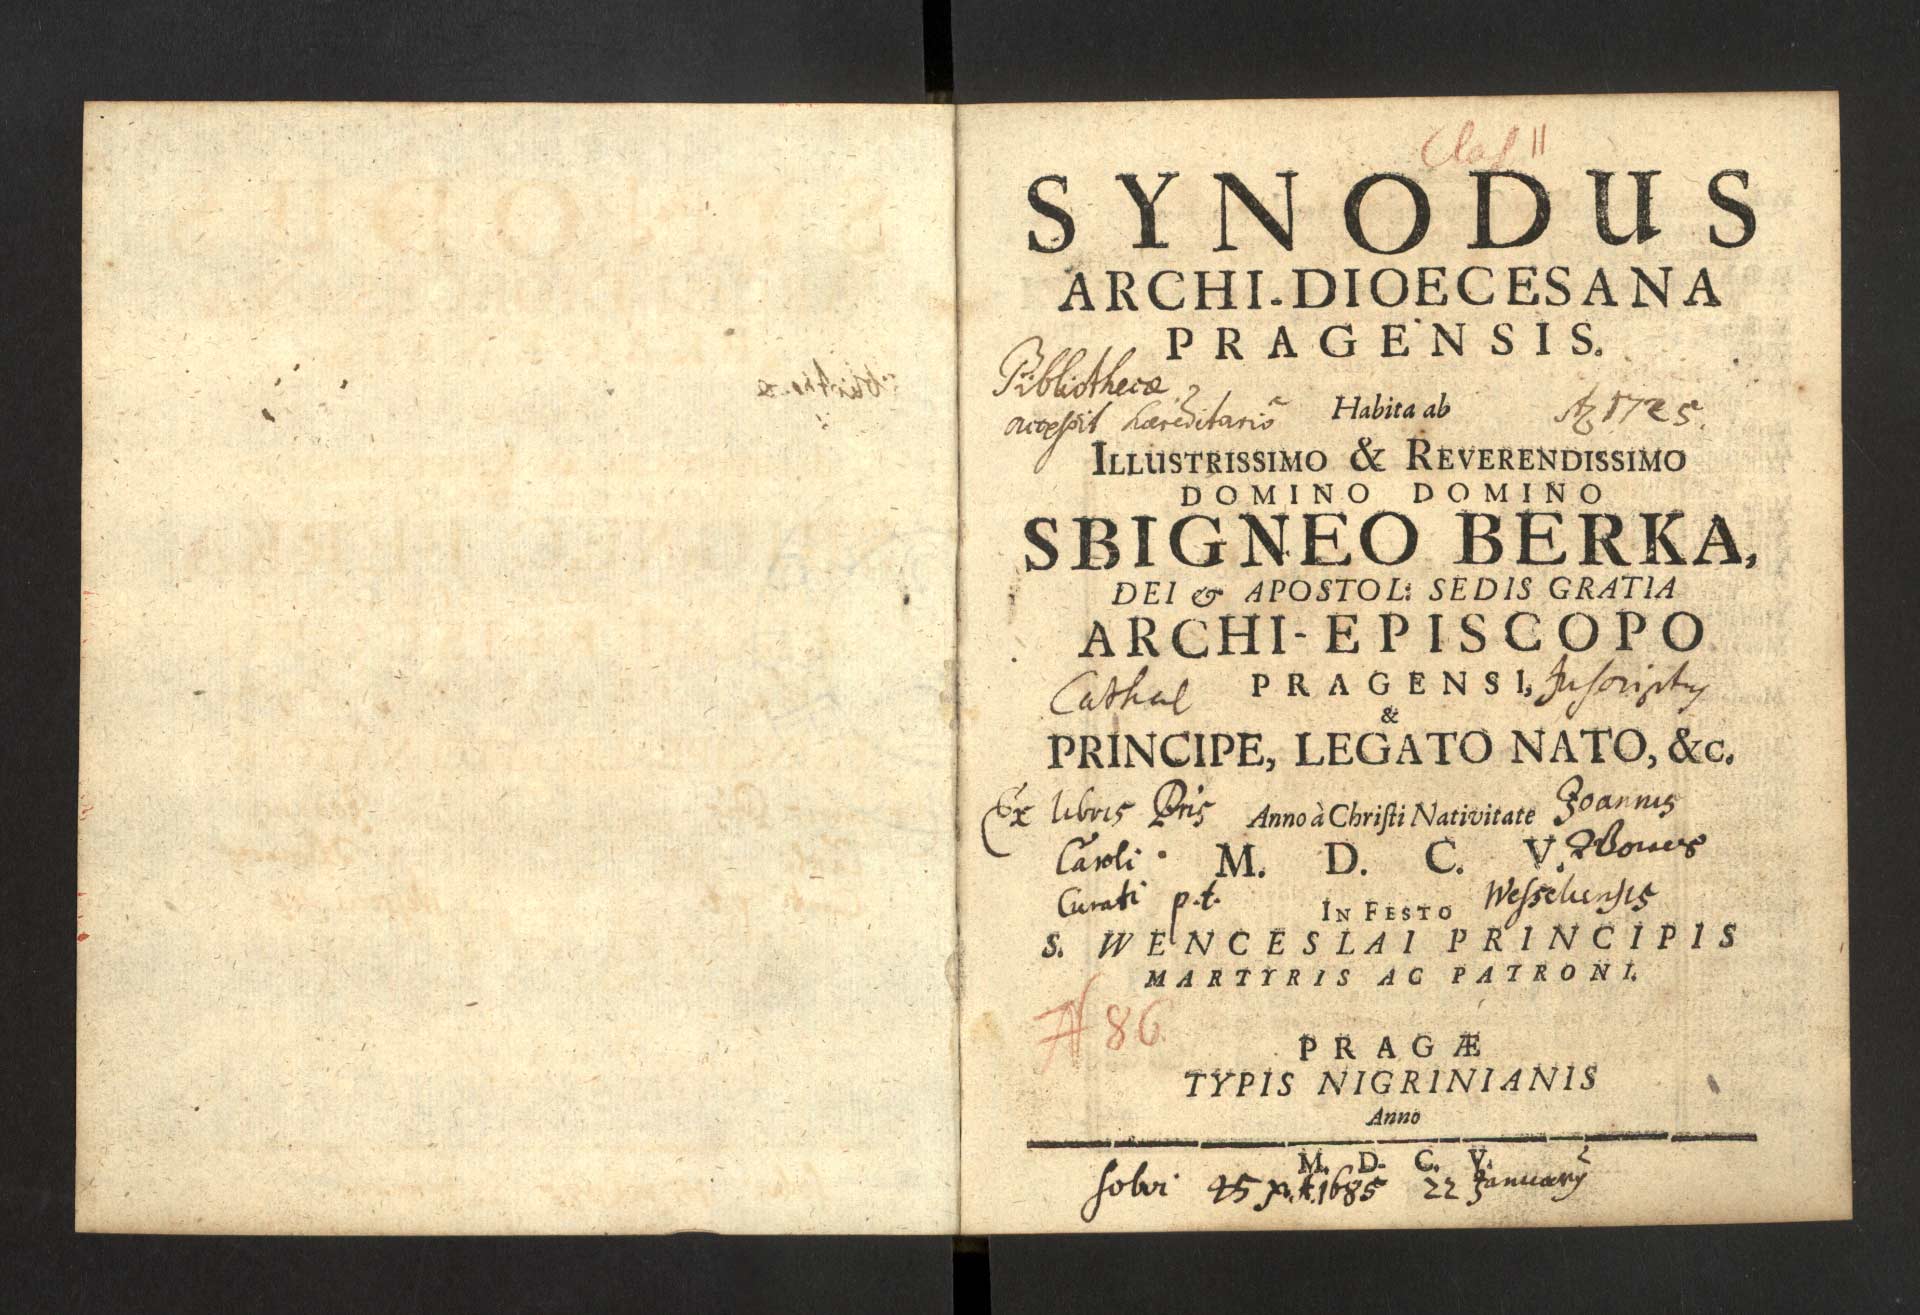 Claſ II
SYNODUS
ARCHI-DIOECESANA
PRAGENSIS.
Bibliothecæ
accessit hæreditario
Habita ab
1725.
ILLUSTRISSIMO & REVERENDISSIMO
DOMINO DOMINO
SBIGNEO BERKA,
DEI & APOSTOL: SEDIS GRATIA
ARCHI-EPISCOPO
PRAGENSI,
Cathal Inscripty
&
PRINCIPE, LEGATO NATO, &c.
Ex libris Pris Joannis
Anno à Chriſti Nativitate
Caroli
M. D. C. V.
Curati p.t. Wesseliensis
IN FESTO
S. WENCESLAI PRINCIPIS
MARTYRIS AC PATRONI.
N 86
PRAGÆ
TYPIS NIGRINIANIS
Anno
M. D. C. V.
solvi 45 x.t. 1685 22 January